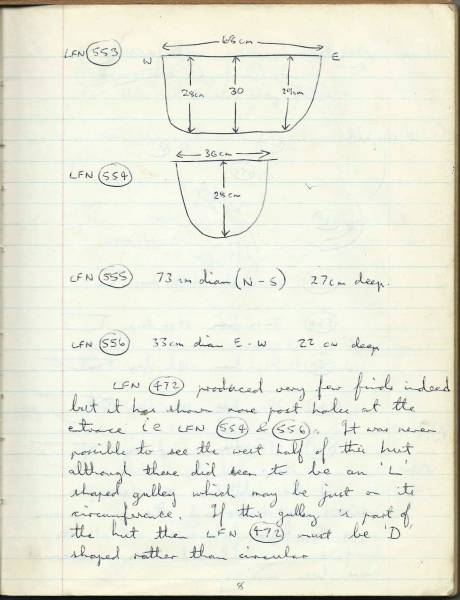 68cm
LFN 553 W E
28cm 30 29cm
36cm
LFN 554
28cm
LFN 555 73cm diam (N-S) 27cm deep.
LFN 556 33cm diam E-W 22 cm deep
LFN 472 produced very few finds indeed
but it has shown more post holes at the
entrace i.e LFN 554 & 556. It was never
possible to see the west half of this hut
although there did seem to be an 'L'
shaped gulley which may be just on its
circumference. If this gulley is part of
the hut then LFN 472 must be 'D'
shaped rather than circular
8